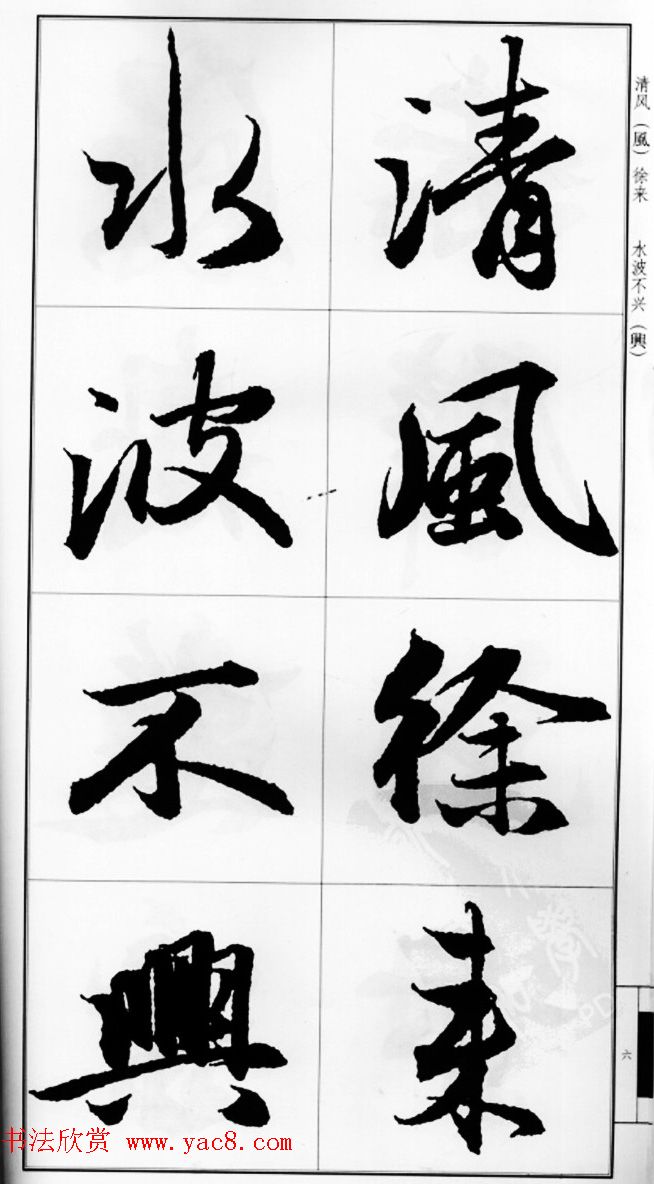 清風徐来
水波不興
清风（風）徐来　水波不兴（興）
六
书法欣赏 www.yac8.com